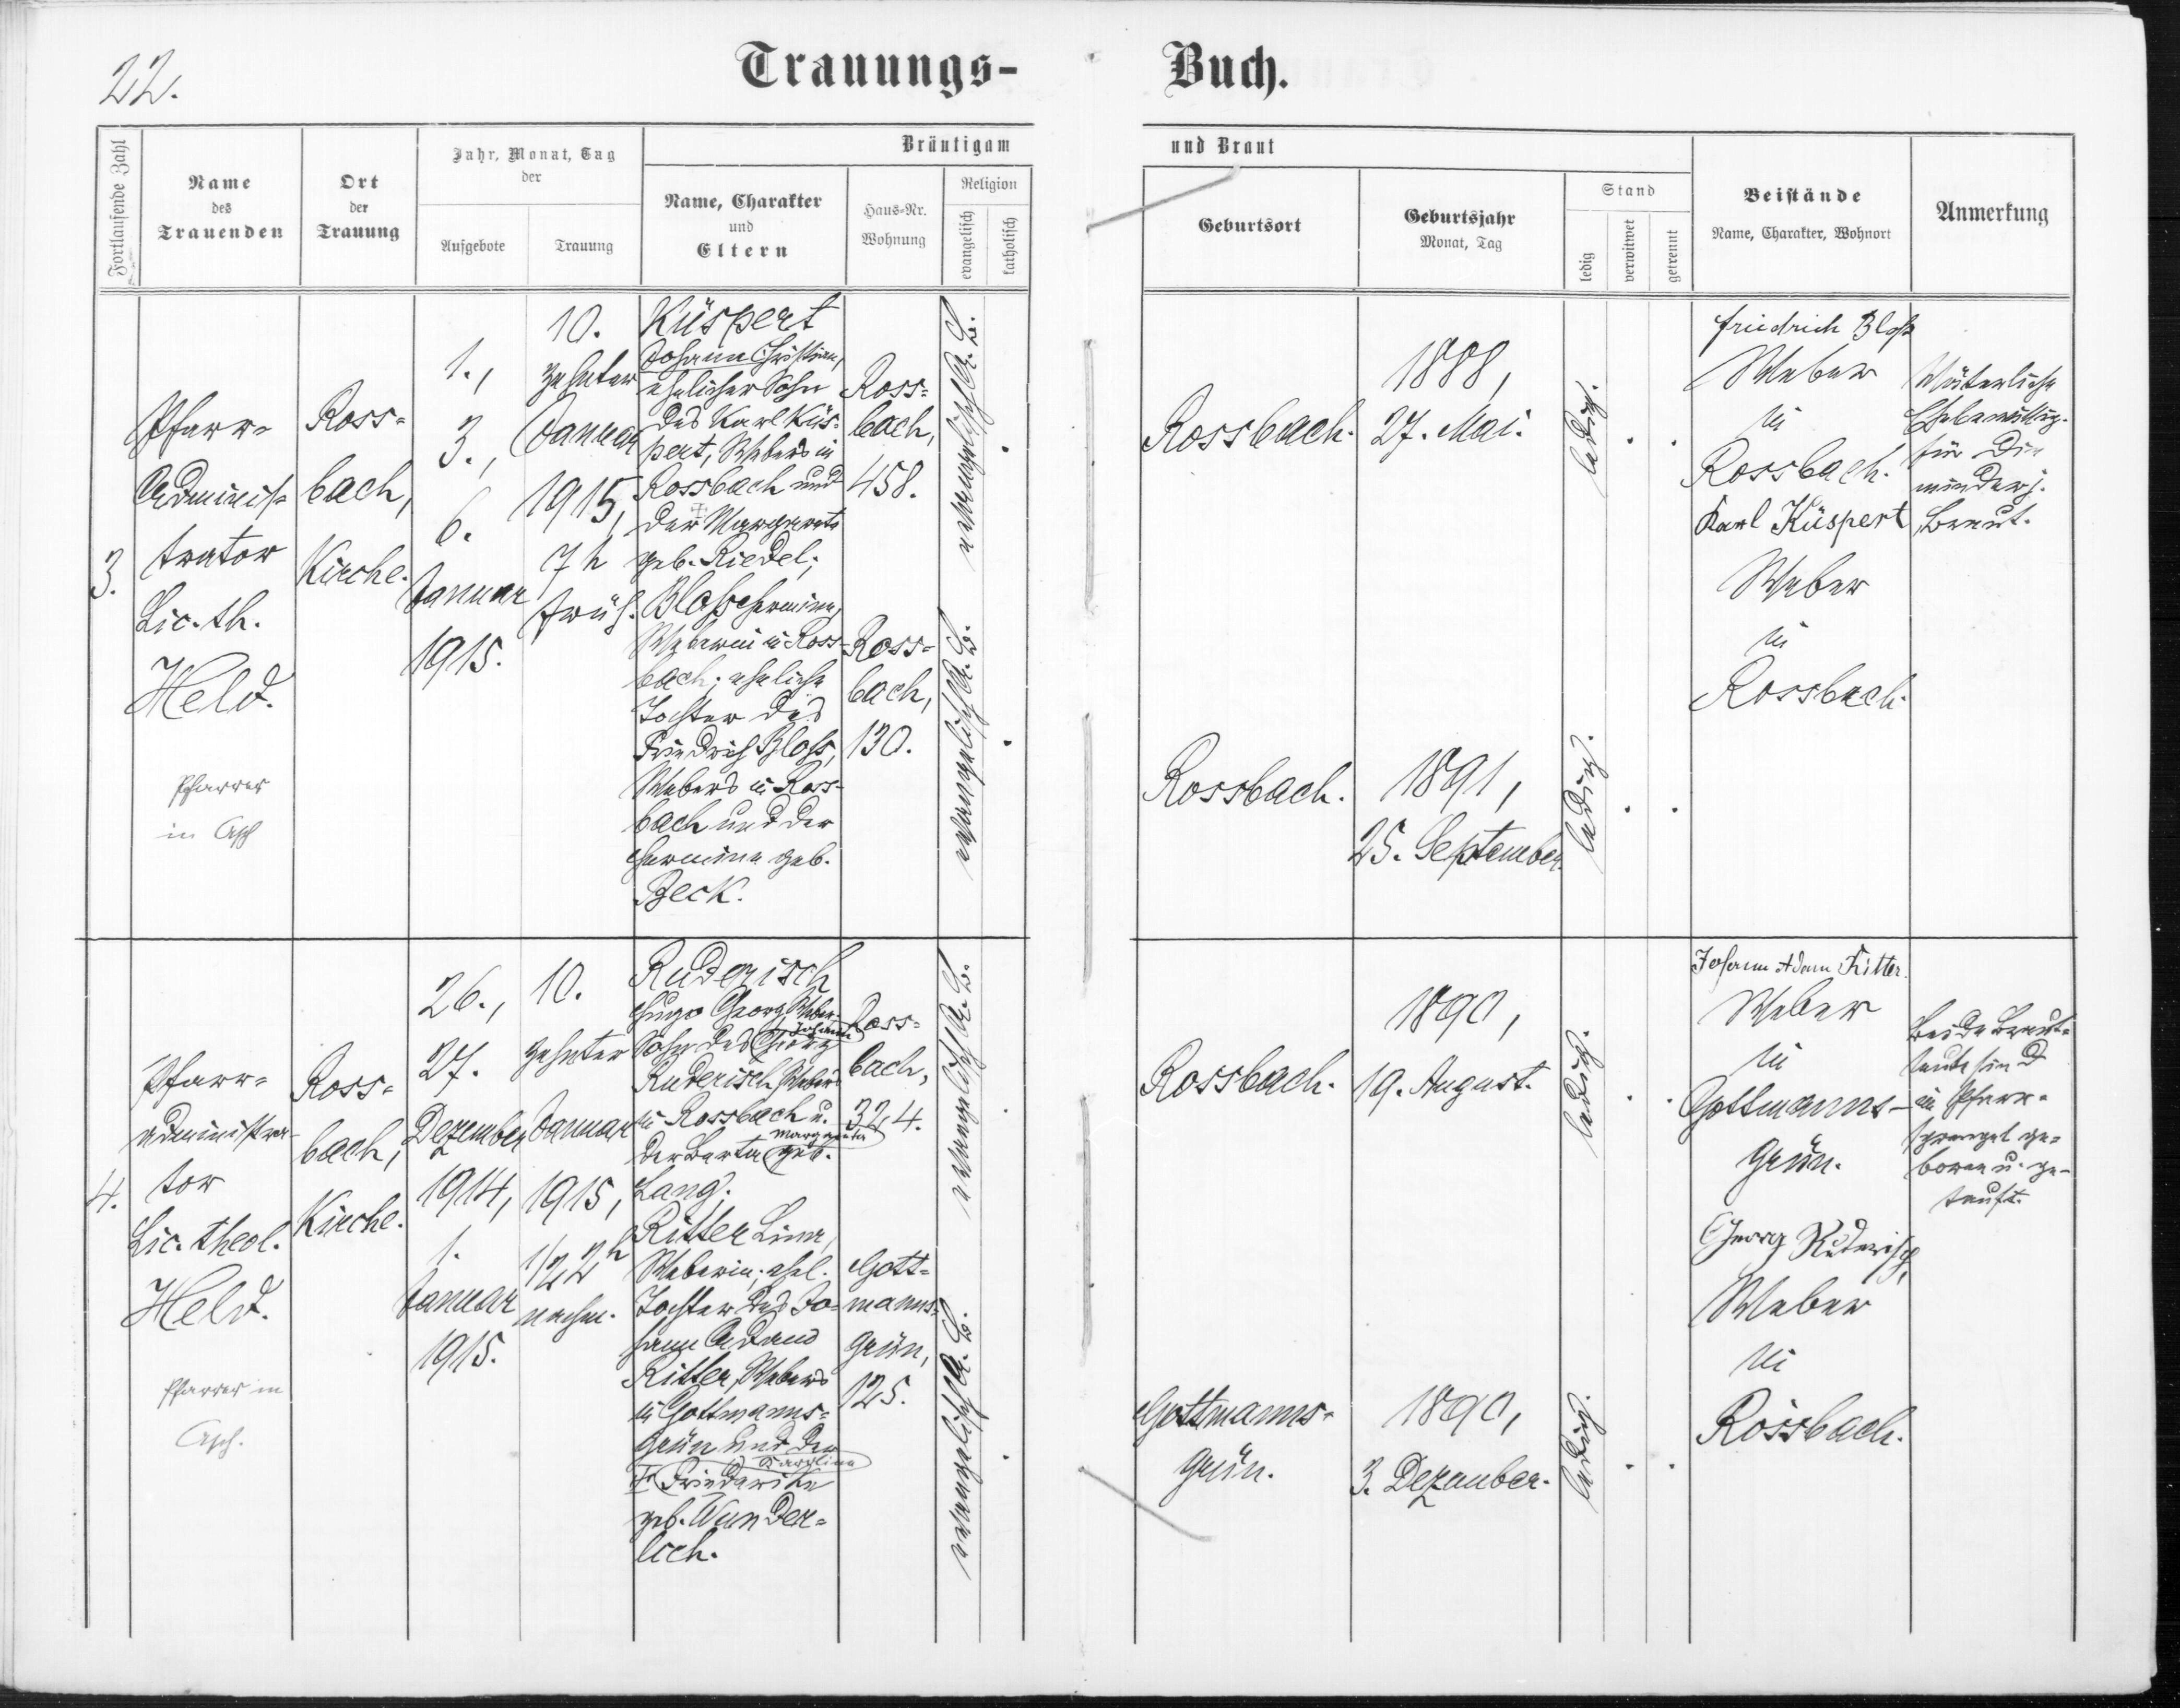 22.
Trauungs-
Buch.
Fortlaufende Zahl
Name
des
Trauenden
Ort
der
Trauung
Jahr, Monat, Tag
der
Aufgebote
Trauung
Bräutigam
Name, Charakter
und
Eltern
Haus-Nr.
Wohnung
Religion
evangelisch
katholisch
und Braut
Geburtsort
Geburtsjahr
Monat, Tag
Stand
ledig
verwitwet
getrennt
Beistände
Name, Charakter, Wohnort
Anmerkung
3.
Pfarr-
Adminis-
trator
Lic. th.
Held.
Pfarrer
in Asch
Ross-
bach,
Kirche.
1.,
3.,
6.
Januar
1915.
10.
zehnter
Januar
1915,
7 h
früh.
Küspert
Johann Christian,
ehelicher Sohn
des Karl Küs-
pert, Webers in
Rossbach und
der Margareta
geb. Riedel;
Bloss Hermine,
Weberin in Ross-
bach; eheliche
Tochter des
Friedrich Bloss,
Webers in Ross-
bach und der
Hermine geb.
Beck.
Ross-
bach,
458.
Ross-
bach,
130.
evangelisch A. B.
evangelisch A. B.
Rossbach.
1888,
27. Mai.
ledig.
Rossbach.
1891,
25. September.
ledig.
Friedrich Bloß
Weber
in
Rossbach.
Karl Küspert
Weber
in
Rossbach.
für die
minderj.
Braut.
4.
Pfarr-
administra-
tor
Lic. theol.
Held.
Pfarrer in
Asch.
Ross-
bach,
Kirche.
26.,
27.
Dezember
1914,
1.
Januar
1915.
10.
zehnter
Januar
1915,
1/2 2 h
nachm.
Ruderisch
Hugo Georg Weber
Johann
Sohn des Georg
Ruderisch Webers
in Rossbach u.
Margareta
der Berta geb.
Lang.
Ritter Lina,
Weberin; ehel.
Tochter des Jo-
hann Adam
Ritter, Webers
in Gottmanns-
grün und der
Karolina
† Friederike
geb. Wunder-
lich.
Ross-
bach,
324.
Gott-
manns-
grün,
125.
evangelisch A. B.
evangelisch A. B.
Rossbach.
1890,
19. August.
ledig.
Gottmanns-
grün.
1890,
3. Dezember.
ledig.
Johann Adam Ritter.
Weber
in
Gottmanns-
grün.
Georg Ruderisch,
Weber
in
Rossbach.
Beide Braut-
leute sind
im Pfarr-
sprengel ge-
boren u. ge-
tauft.